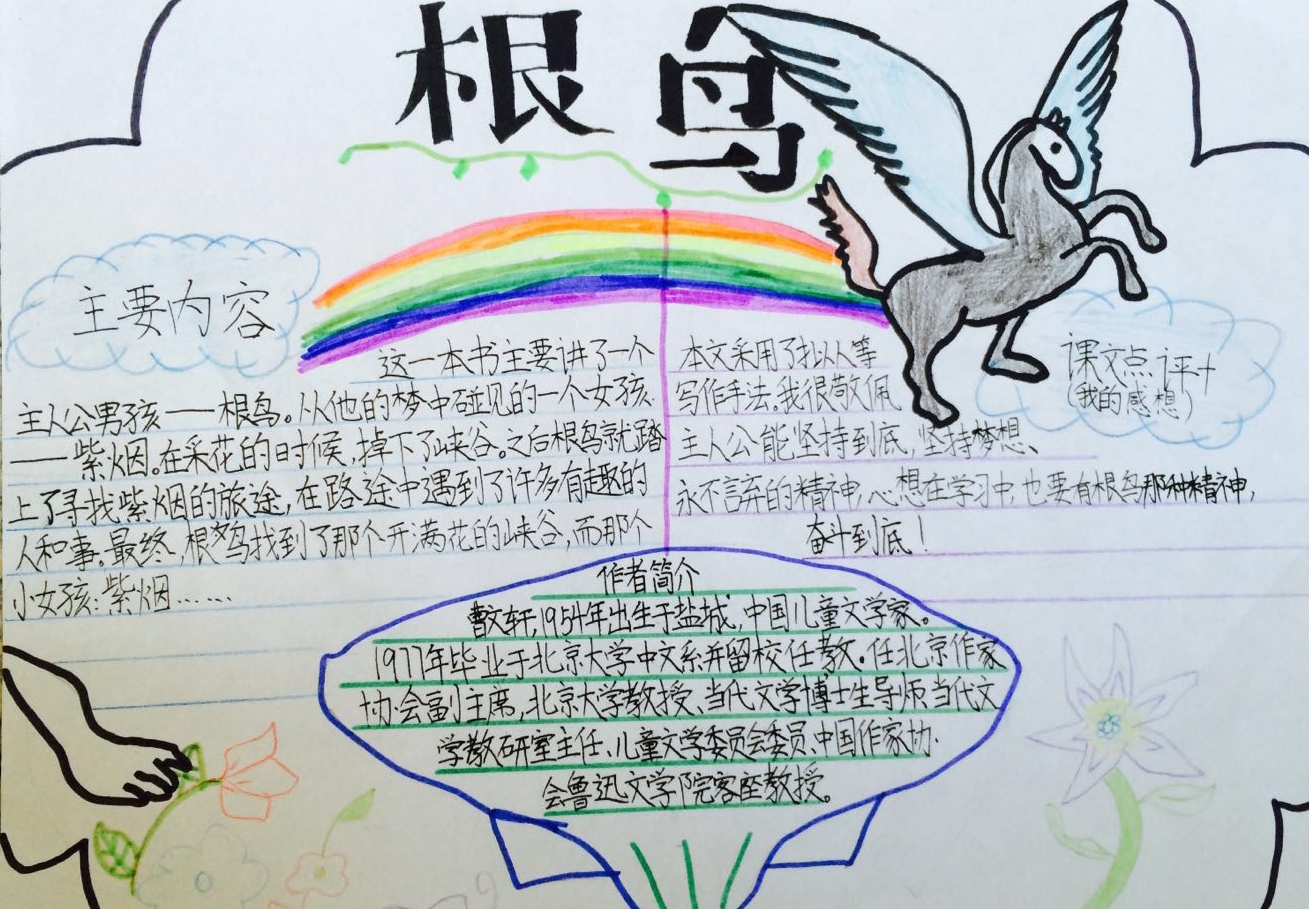 根鸟
主要内容
这一本书主要讲了一个
主人公男孩——根鸟。从他的梦中碰见的一个女孩
——紫烟。在采花的时候,掉下了峡谷。之后根鸟就踏
上了寻找紫烟的旅途,在路途中遇到了许多有趣的
人和事。最终,根鸟找到了那个开满花的峡谷,而那个
小女孩:紫烟……
课文点评
(我的感想)
本文采用了拟人等
写作手法。我很敬佩
主人公能坚持到底,坚持梦想、
永不言弃的精神,心想在学习中,也要有根鸟那种精神,
奋斗到底!
作者简介
曹文轩,1954年出生于盐城,中国儿童文学家。
1977年毕业于北京大学中文系并留校任教。任北京作家
协会副主席,北京大学教授、当代文学博士生导师、当代文
学教研室主任、儿童文学委员会委员、中国作家协
会鲁迅文学院客座教授。